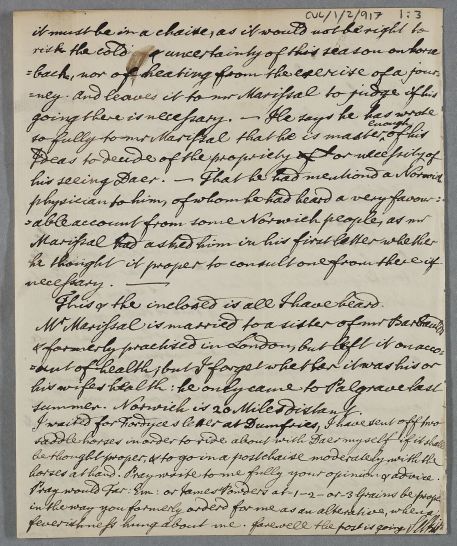 CUL/1/2/917 1:3
it must be in a chaise, as it would not be right to
risk the cold & uncertainty of this season on horse
=back, nor of heating from the exercise of a jour
=ney. And leaves it to mr Marissal to judge if his
going there is necessary. — He says he has wrote
so fully to mr Marissal that he is master enough of his
Ideas to decide of the propriety or necessity of
his seeing Daer. — That he had mentiond a Norwich
physician to him, of whom he had heard a very favour=
=able account from some Norwich people, as mr
Marissal had asked him in his first letter whether
he thought it proper to consult one from thence if
necessary. —
This & the inclosed is all I have heard.
Mr Marissal is married to a sister of mr Barbaulds
& formerly practised in London, but left it on acco=
=unt of health, but I forget whether it was his or
his wifes health. he only came to Palgrave last
summer. Norwich is 20 Miles distant.
I waited for Fordyces letter at Dumfries, I have sent off two
saddle horses in order to ride about with Daer myself if it shall
be thought proper, & to go in a postchaise moderately with the
horses at hand. Pray write to me fully your opinion & advice.
Pray would Tar: Em: or James Powders at -1-2- or -3 Grains be proper
in the way you formerly orderd for me as an alterative, when a
feverishness hung about me. farewell the post is going